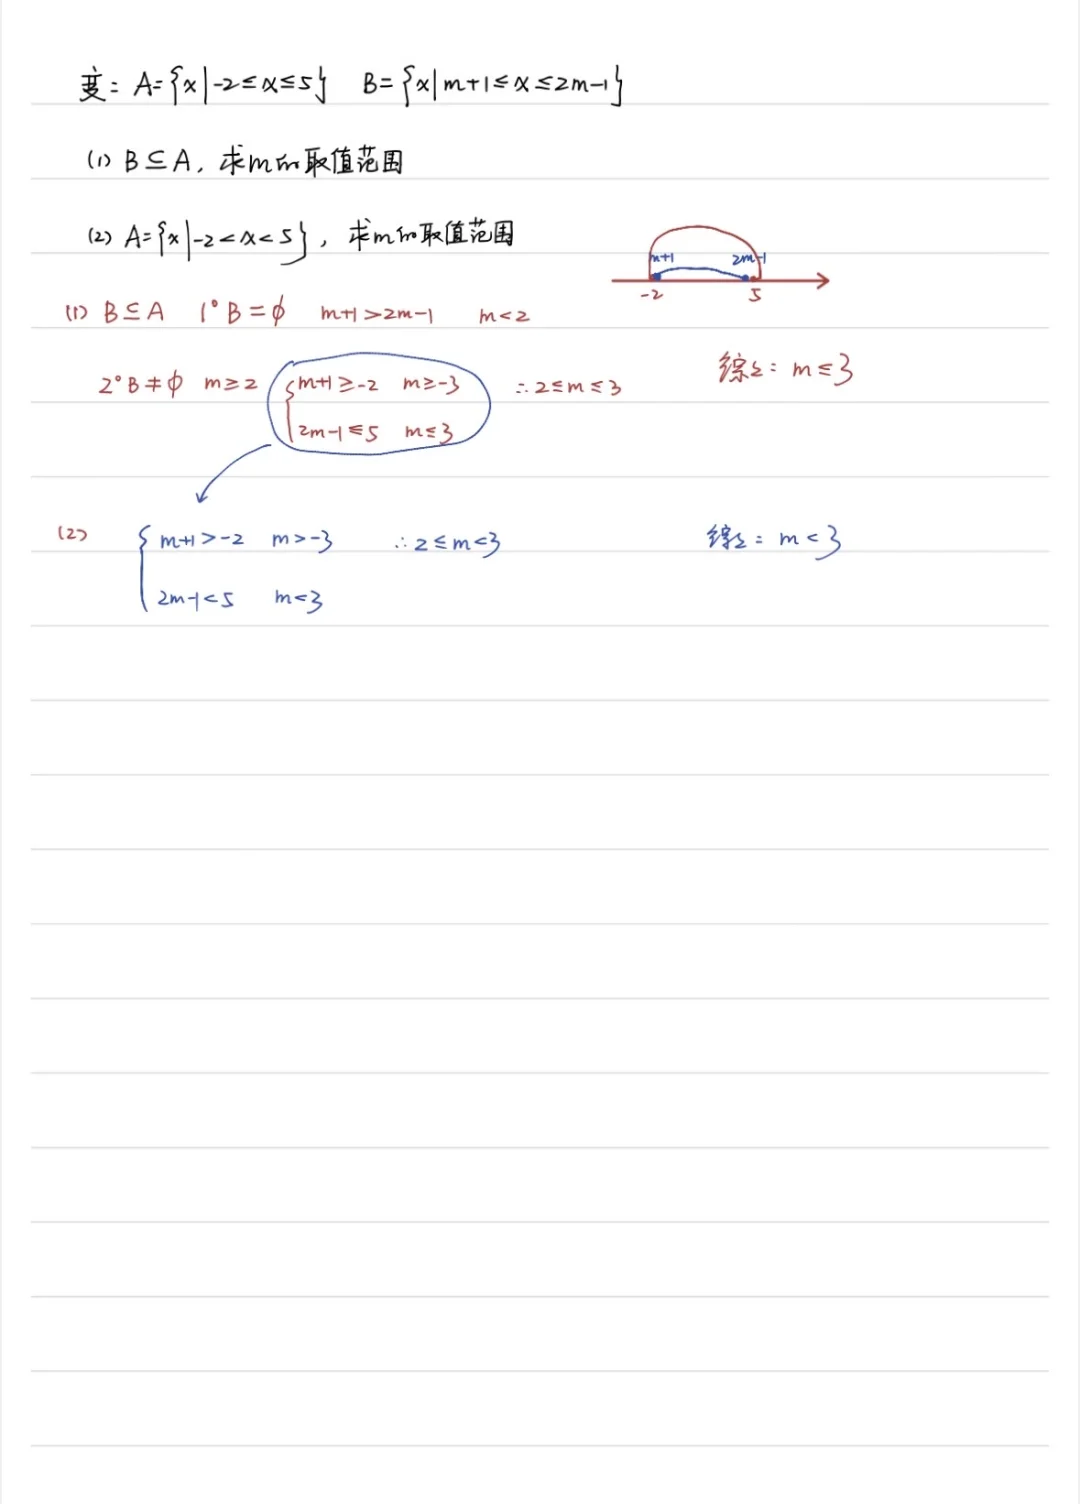 变: A={x|-2≤x≤5} B={x|m+1≤x≤2m-1}
(1) B⊆A, 求m的取值范围
(2) A={x|-2<x<5}, 求m的取值范围
m+1 2m-1
-2 5
(1) B⊆A 1° B=∅ m+1>2m-1 m<2
2° B≠∅ m≥2 {m+1≥-2 m≥-3 ∴2≤m≤3 综上: m≤3
2m-1≤5 m≤3
(2) {m+1>-2 m>-3 ∴2≤m<3 综上: m<3
2m-1<5 m<3